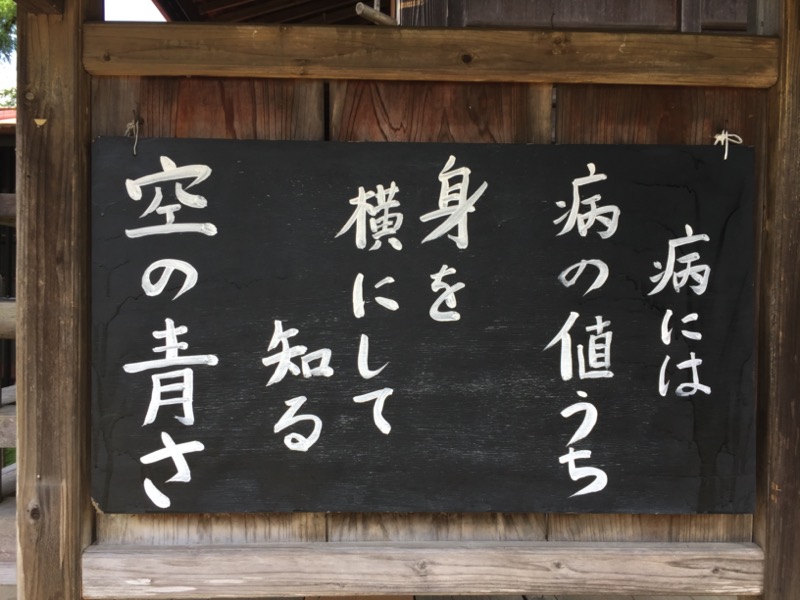 病には
病の値うち
身を
横にして
知る
空の青さ